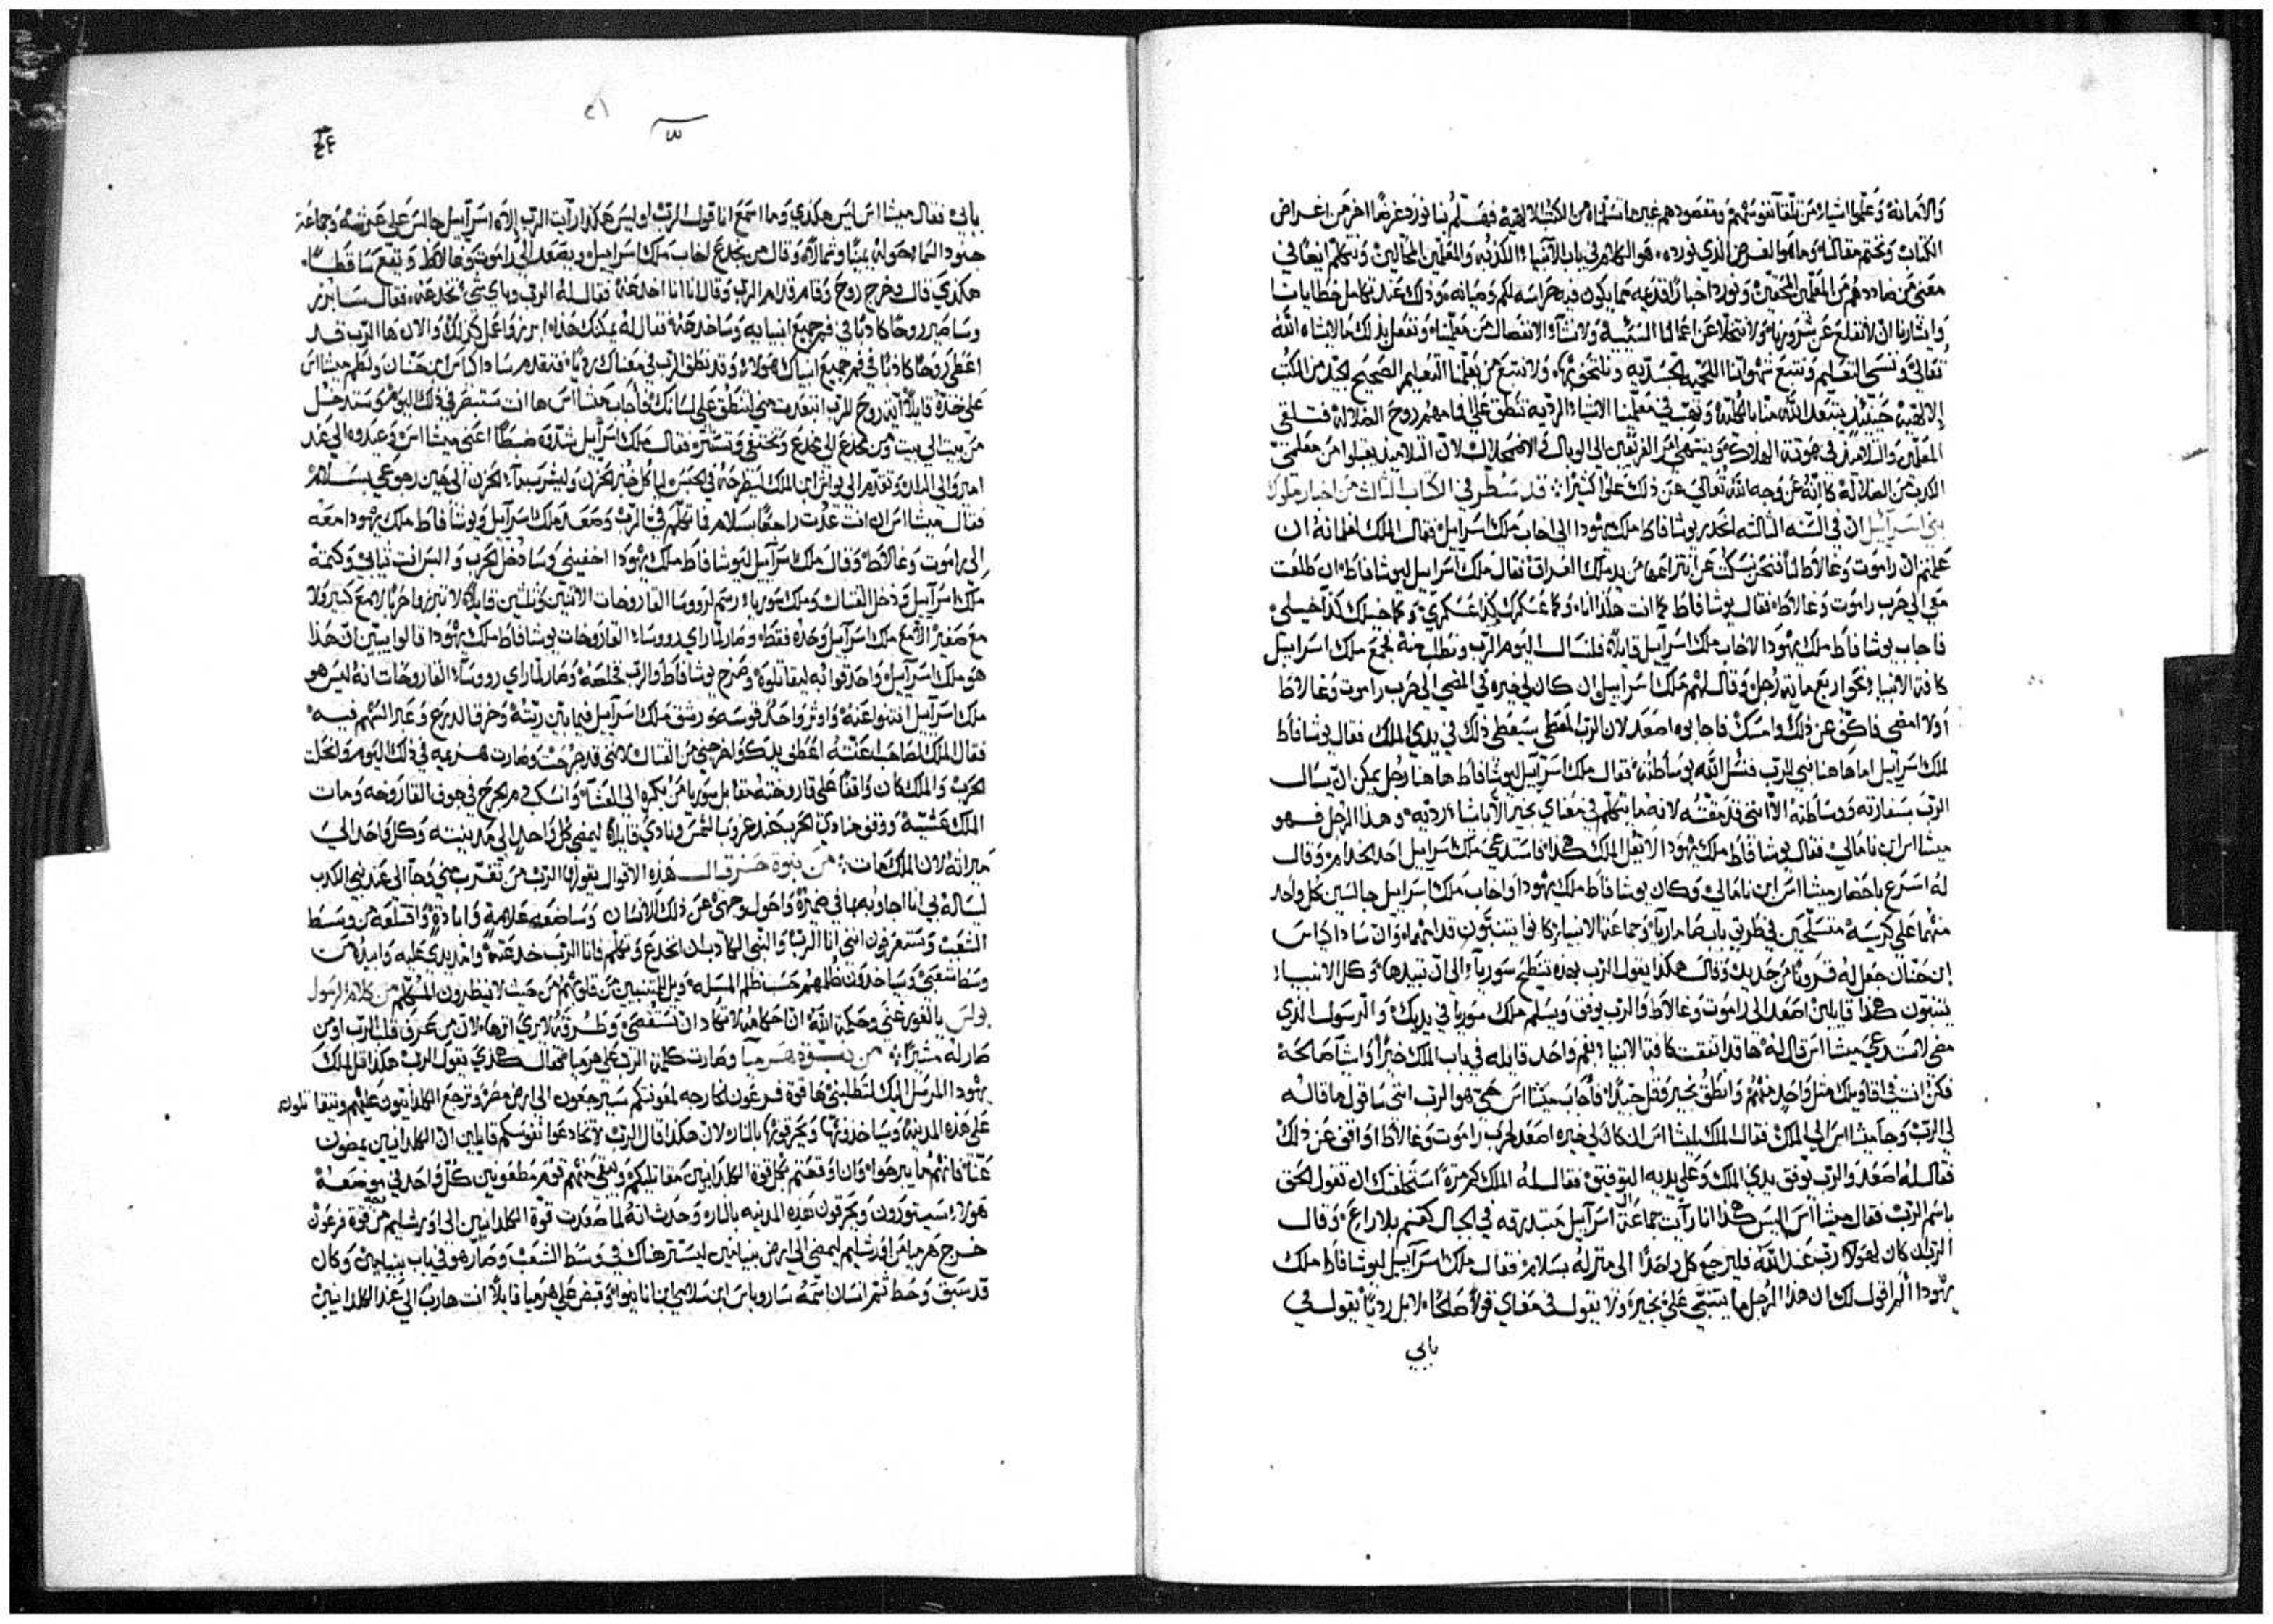 والامانة وعلموا اشياء من تلقآ نفوسهم وتقصودهم غير ما تسلماه من الكتب الالهية فهلم بنا نورد غرضًا اخر من اغراض
الكتاب ونختم مقالنا وما هو الغرض الذي نورده هو الكلام في باب الآنبياء الكذبه والمعلمين المحالين ونتكلم ايضًا في
معنى من ضاددهم من المعلمين المحقين ونورد اخبارًا قديمه مما يكون فيه حراسه لكم وصيانه وذلك عند تكامل خطايانا
وايثارنا ان لا نقلع عن شرورنا ولا نتخلا عن اعمالنا السيئه ولا نشآء الانفصال من معلمينا ونفعل بذلك ما لا يشاه الله
تعالى وننسى التعليم ونتبع شهواتنا اللحميه الجسديه ولا نتبع من يعلمنا التعليم الصحيح من الكتب
الالهيه حينيذ يبتعد الله منا بالكليه ويهب في معلمينا الاشياء الرديه تنطق على افامهم روح الضلاله فتلقى
المعلمين والتلاميذ في هوتة الهلاك وينتهي امر الفريقين الى الوبال والاضمحلال لان التلاميذ يقبلوا من معلمي
الكذب من الضلاله كانه عن وجه الله تعالى عن ذلك علوًا كثيرًا قد سطر في الكتاب الثالث من اخبار ملوك
بني اسرآييل ان في السنه الثالثه انحدر يوشافاط ملك يهودا الى اخاب ملك اسراييل فقال الملك لغلمانه ان
علمتم ان راموت وغالاط لنا فنحن نسكت عن انتزاعها من يد ملك العراق فقال ملك اسراييل ليوشافاط ان طلعت
معي الى حرب راموت وغالاط فقال يوشافاط كما انت هكذا انا وكما عسكرك كذا عسكري وكما خيلك كذا خيلي
فاجاب يوشافاط ملك يهودا لاخاب ملك اسرآييل قايلاً فلنسال اليوم الرب ونطلب منه فجمع ملك اسراييل
كافة الانبياء نحو اربع مايه رجل وقال لهم ملك اسراييل ان كان لي خيره في المضي الى حرب راموت وغالاط
اولا امضي فاكف عن ذلك وامسك فاجابوه اصعد لان الرب المعطي سيعطي ذلك في يدي الملك فقال يوشافاط
لملك اسرآييل اما هاهنا نبي للرب فنسل الله بوساطته فقال ملك اسرآييل ليوشافاط هاهنا رجل يمكن ان يسال
الرب بسفارته ووساطته الا انني قد مقته لانه ما يتكلم في معناي بخير الا باشياء رديه وهذا الرجل فهو
ميشااس ابن نامالي فقال يوشافاط ملك يهودا لا يقل الملك هكذا فاستدعى ملك اسراييل احد الخدام وقال
له اسرع باحضار ميشااس ابن نامالي وكان يوشافاط ملك يهودا واخاب ملك اسراييل جالسين كل واحد
منهما على كرسيه متسلحين في طريق باب صاماريآ وجماعة الانبياء كانوا يتنبون قدامهما وان ساداكياس
ابن حنان جعل له قرونًا من حديد وقال هكذا يقول الرب بهذه تنطح سوريآ الى ان تبيدها وكل الانبياء
يتنبون هكذا قايلين اصعد الى راموت وغالاط والرب يوفق ويسلم ملك سوريا في يديك والرسول الذي
مضى لاستدعى ميشااس قال له ها قد اتفقت كافة الانبيا بفم واحد قايله في باب الملك خيرًا واشيآ صالحة
فكن انت في اقاويلك مثل واحد منهم وانطق بخير وقل جيدًا فاجاب ميشااس حي هو الرب انني ساقول ما قاله
لي الرب وجآ ميشااس الى الملك فقال الملك لميشااس ان كان لي خيره اصعد لحرب راموت وغالاط او اقف عن ذلك
فقال له اصعد والرب يوفق يدي الملك وعلى يديه التوفيق فقال له الملك كم مرة استحلفتك ان تقول الحق
باسم الرب فقال ميشااس اليس هكذا انا رآيت جماعة ال اسرآييل متبدرقه في الجبال كغنم بلا راع وقال
الرب ان كان لهولاء رب عند الله فليرجع كل واحدًا الى منزله بسلام فقال ملك اسرآييل ليوشافاط ملك
يهودا الم اقول لك ان هذا الرجل ما يتنبى علي بخير ولا يقول في معناي قولاً صالحًا لا بل رديًا يقول في
بابي
بابي فقال ميشااس ليس هكذي وما اسمع انا قول الرب اوليس هكذا رآيت الرب الاه اسرآييل جالس على عرشه وجماعة
جنود السما حوله يمينًا وشمالاً وقال من يخدع لخاب ملك اسراييل ويصعد الى راموت وغالاط ويقع ساقطًا
هكذي قال فخرج روح وقام قدام الرب وقال انا اخدعه فقال له الرب وباي شي تخدعه فقال سابرز
وساصير روحًا كادبًا في فم جميع انبيايه وساخدعه فقال له يمكنك هذا ابرز واعمل كذلك والان ها الرب قد
اعطى روحًا كادبًا في فم جميع انبياك هولاء وقد نطق الرب في معناك رديًا فتقدم ساداكياس ابن حنان ولطم ميشااس
على خده قايلاً آية روح للرب ابتعدت مني لتنطق على لسانك فاجاب ميشااس ها انت ستنظر في ذلك اليوم وستدخل
من بيت الى بيت ومن مخدع الى مخدع وتختفي وتستتر فقال ملك اسرآييل شدوه ضبطًا اعني ميشااس وعيدوه الى عند
امير والي المدن وتقدم الى يواش ابن الملك ليطرحه في الحبس ليآكل خبز الحزن وليشرب مآء الحزن الى حين رجوعي بسلام
فقال ميشااس ان انت عدت راجعًا بسلام فما تكلم في الرب وصعد ملك اسرآييل ويوشافاط ملك يهودا معه
الى راموت وغالاط وقال ملك اسرآييل ليوشافاط ملك يهودا اخفيني وسادخل الحرب والبس انت ثيابي وكتمة
ملك اسرآييل ودخل القتال وملك سوريا رسم لرووسا القاروخات الاثنين وثلثين قايلاً لا تبرزوا حربًا لا مع كبير ولا
مع صغير الا مع ملك اسرآييل وحده فقط وصار لما راي رووساء القاروخات يوشافاط ملك يهودا قالوا يبين ان هذا
هو ملك اسرآييل واحدقوا به ليقاتلوه وصرخ يوشافاط والرب خلصه وصار لما راي رووسآء القاروخات انه ليس هو
ملك اسرآييل انثنوا عنه واوتر واحد قوسه ورشق ملك اسرآييل فيما بين ريته وخرق الدرع وعبر السهم فيه
فقال الملك لصاحب اعنته اعطف يدك واخرجني من القتال لانني قد جرحت وصارت هزيمه في ذلك اليوم وانحلت
الحرب والملك كان واقفًا على قاروخته مقابل سوريا من بكره الى العشآ وانسكب دم الجرح في جوف القاروخه ومات
الملك عشية ووقف منادي الحرب عند غروب الشمس ونادى قايلاً ليمضي كل واحد الى مدينته وكل واحد الى
ميراثه لان الملك مات من نبوة حزقيال هذه الاقوال يقولها الرب من تغرب عني وجآ الى عند نبي الكذب
ليساله بي انا اجاوبه بما في ضميره واحول وجهي عن ذلك الانسان وساضعه علامة وابادة واقتلعه من وسط
الشعب وستعرفون انني انا الرب والنبي الكاذب ان انخدع وتكلم فانا الرب خدعته وامد يدي عليه وابيده من
وسط شعبي وسياخدون ظلمهم حسب ظلم المسله ويل للمتنبيين من قلوبهم من حيث لا ينظرون المتكلم من كلام الرسول
بولس يا لغور غنى وحكمة الله ان احكامه لا تكاد ان تستقصى وطرقه لا يرى اثرها لان من عرف قلب الرب او من
صار له مشيرًا من نبوة هرميآ وصارت كلمة الرب على هرميا فقال هكذي يقول الرب هكذا قل لملك
يهودا المرسل اليك لتطلبني ها قوة فرعون الخارجه لمعونتكم سيرجعون الى ارض مصر وترجع الكلدانيون عليهم وتبقا تلوله
على هذه المدينه وسياخدونها ويحرقونها بالنار لان هكذا قال الرب لا تخادعوا نفوسكم قايلين ان الكلدانيين يمضون
عنا فانهم ما يبرحوا وان اوقعتم بكل قوة الكلدانيين مقاتليكم وتبقى منهم قوم مطعونين كل واحد في موضعه
هولاء سيتورون ويحرقون هذه المدينه بالنار وحدث انه لما صعدت قوة الكلدانيين الى اورشليم من قوة فرعون
خرج هرميا من اورشليم ليمضي الى ارض بنيامين ليستتر هناك في وسط الشعب وصار هو في باب بنيامين وكان
قد سبق وحط ثم انسان اسمه ساروياس ابن سلامي ابن نانيوا وقبض على هرميا قايلاً انت هارب الى عند الكلدانيين